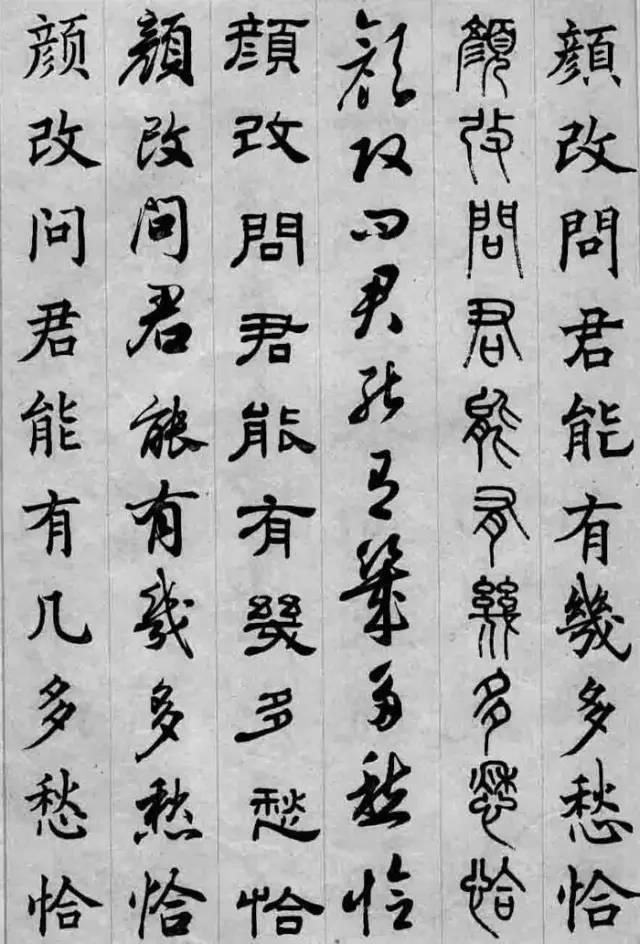 顔改問君能有幾多愁恰
顔改問君能有幾多愁恰
顔改問君能有幾多愁恰
顔改問君能有幾多愁恰
顔改問君能有幾多愁恰
颜改问君能有几多愁恰